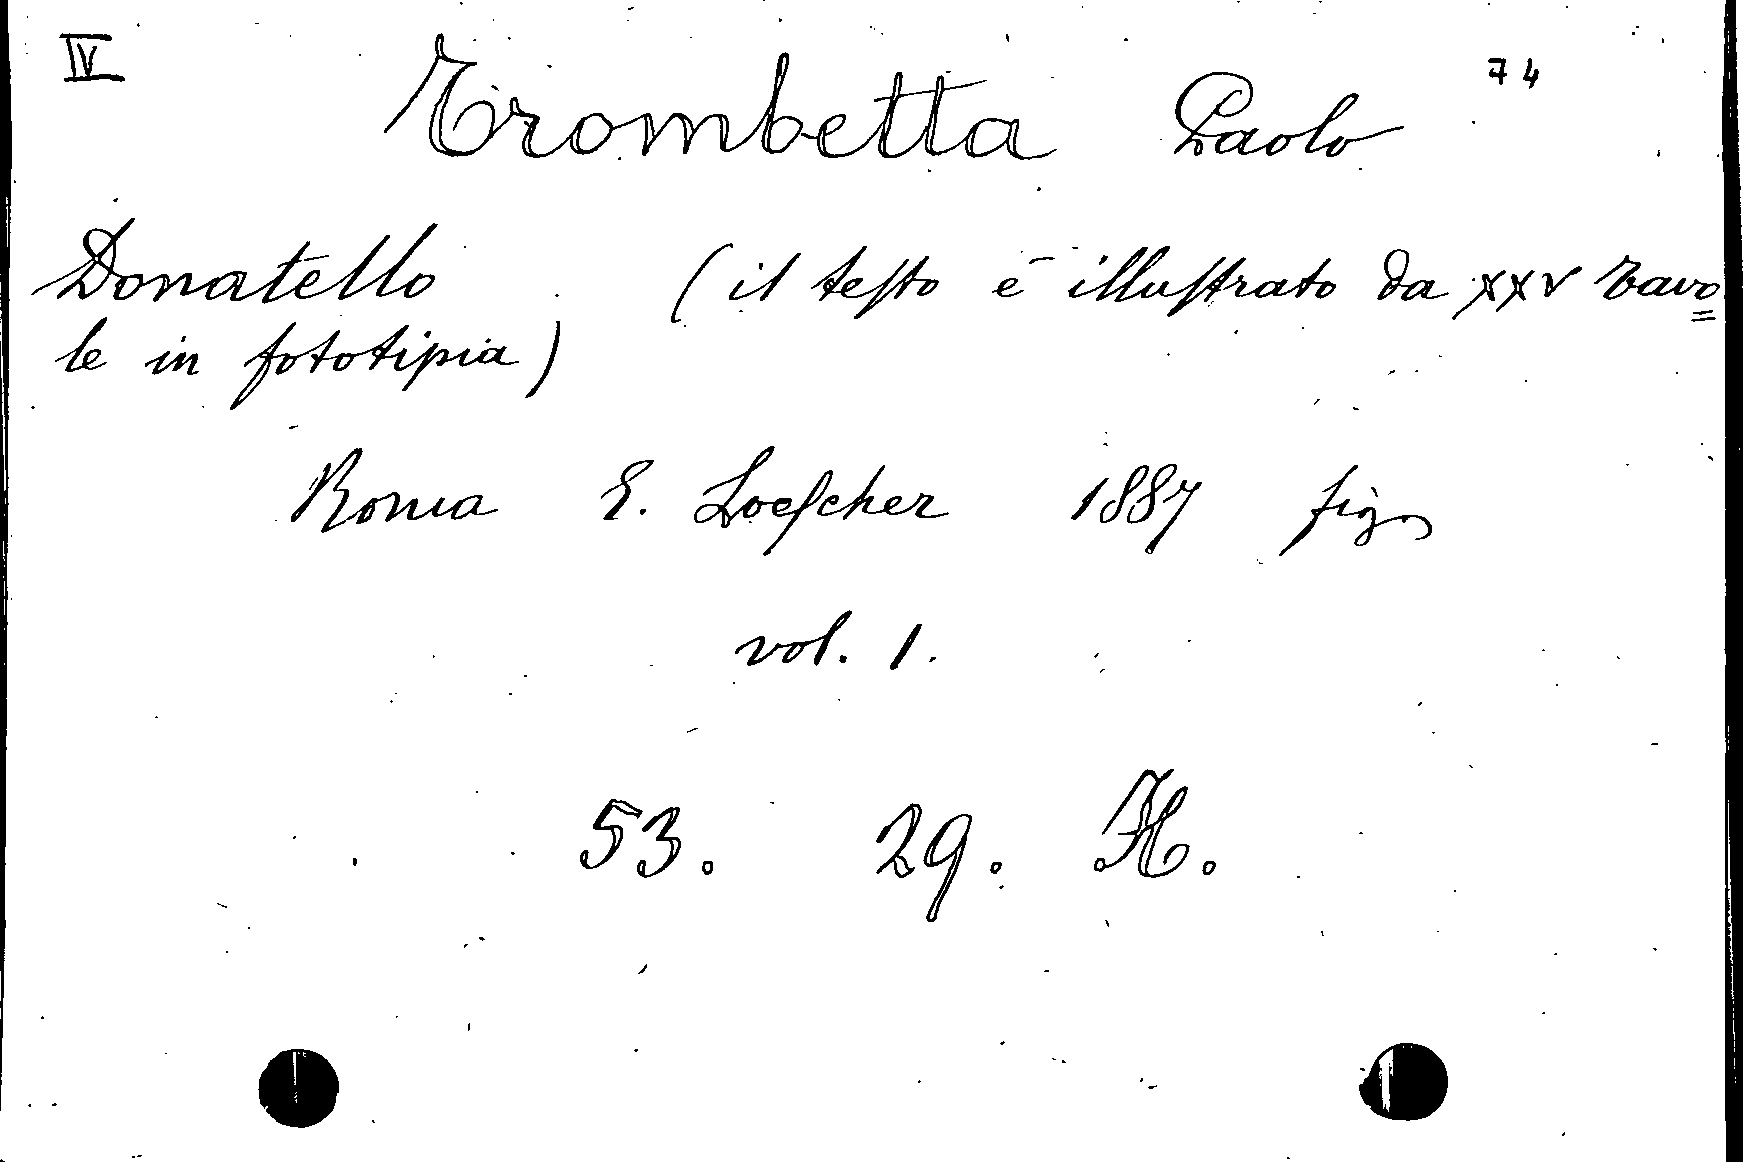 IV Trombetta Paolo 74
Donatello (il testo è illustrato da XXV Tavo=
le in fototipia)
Roma E. Loescher 1887 fig.
vol. 1.
53. 29. H.